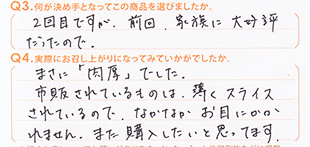 Q3.何が決め手となってこの商品を選びましたか。
2回目ですが、前回、家族に大好評
だったので。
Q4.実際にお召し上がりになってみていかがでしたか。
まさに「肉厚」でした。
市販されているものは、薄くスライス
されているので、なかなかお目にかか
れません。また購入したいと思ってます。